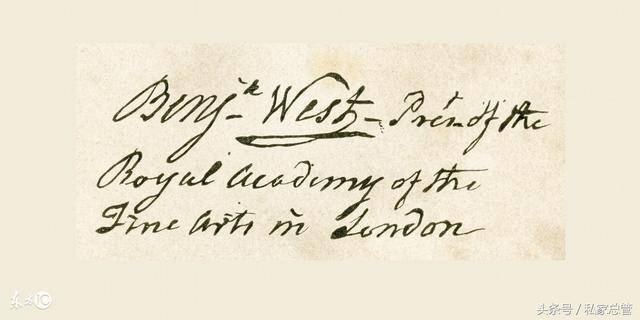 Benjn West - Prest of the
Royal Academy of the
Fine Arts in London
头条号 / 私家总管